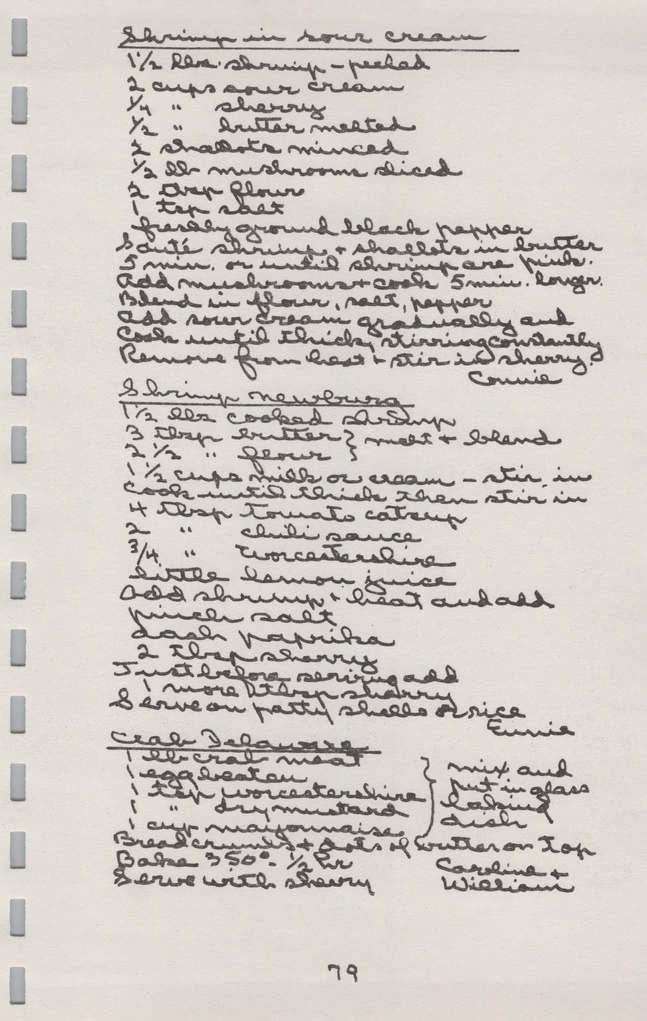 Shrimp in sour cream
1 1/2 lbs. shrimp - peeled
2 cups sour cream
1/4 " sherry
1/2 " butter melted
2 shallots minced
1/2 lb mushrooms sliced
2 tbsp flour
1 tsp salt
freshly ground black pepper
Sauté shrimp + shallots in butter
5 min. or until shrimp are pink.
Add mushrooms + cook 5 min. longer.
Blend in flour, salt, pepper
Add sour cream gradually and
Cook until thick, stirring constantly
Remove from heat + stir in sherry.
Connie
Shrimp Newburg
1 1/2 lbs cooked shrimp
3 tbsp butter } melt + blend
2 1/2 " flour }
1 1/2 cups milk or cream - stir in
cook until thick then stir in
4 tbsp tomato catsup
2 " chili sauce
3/4 " Worcestershire
little lemon juice
Add shrimp + heat and add
pinch salt
dash paprika
2 tbsp sherry
Just before serving add
1 more tbsp sherry
Serve on patty shells or rice
Eunie
Crab Delaware
1 lb crab meat } mix and
1 egg beaten put in glass
1 tsp worcestershire baking
1 " dry mustard dish
1 cup mayonnaise
Breadcrumbs + dots of butter on top
Bake 350° - 1/2 hr Caroline +
Serve with sherry William
79